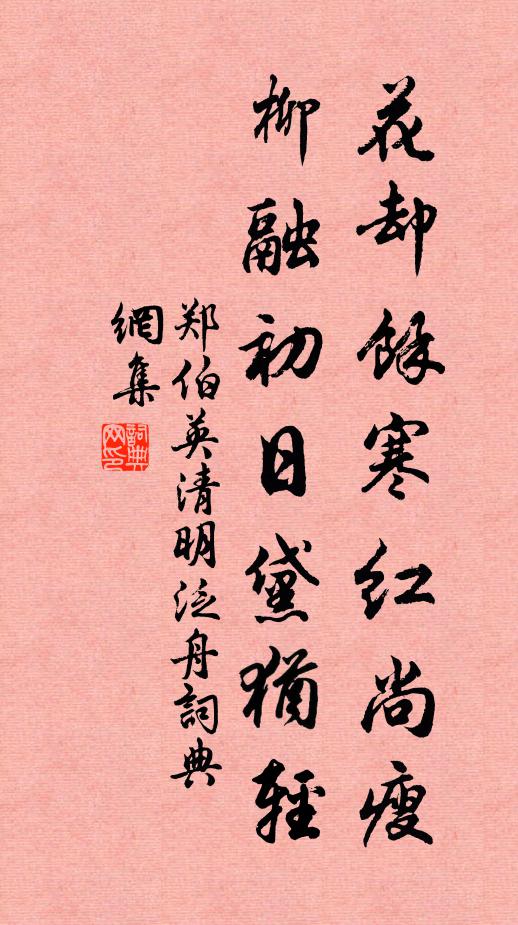 花却餘寒红尚瘦
柳融初日黛猶輕
郑伯英清明泛舟詞典
網集
詞典
网印